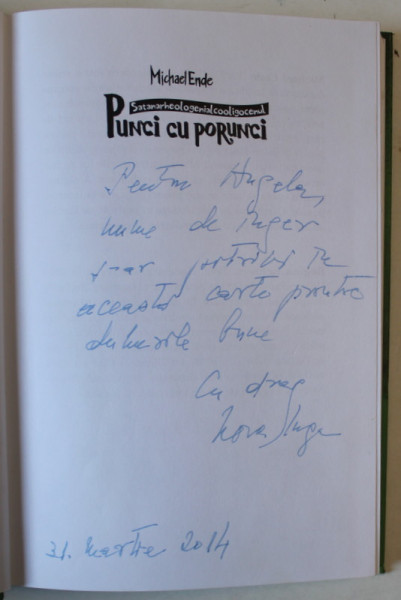 Michael Ende
Satanarheologenialcooligocenul
Punci cu porunci
Pentru Angela,
nume de înger
s-ar potrivi în
această carte printre
duhurile bune
Cu drag
Nora Iuga
31. Martie 2014